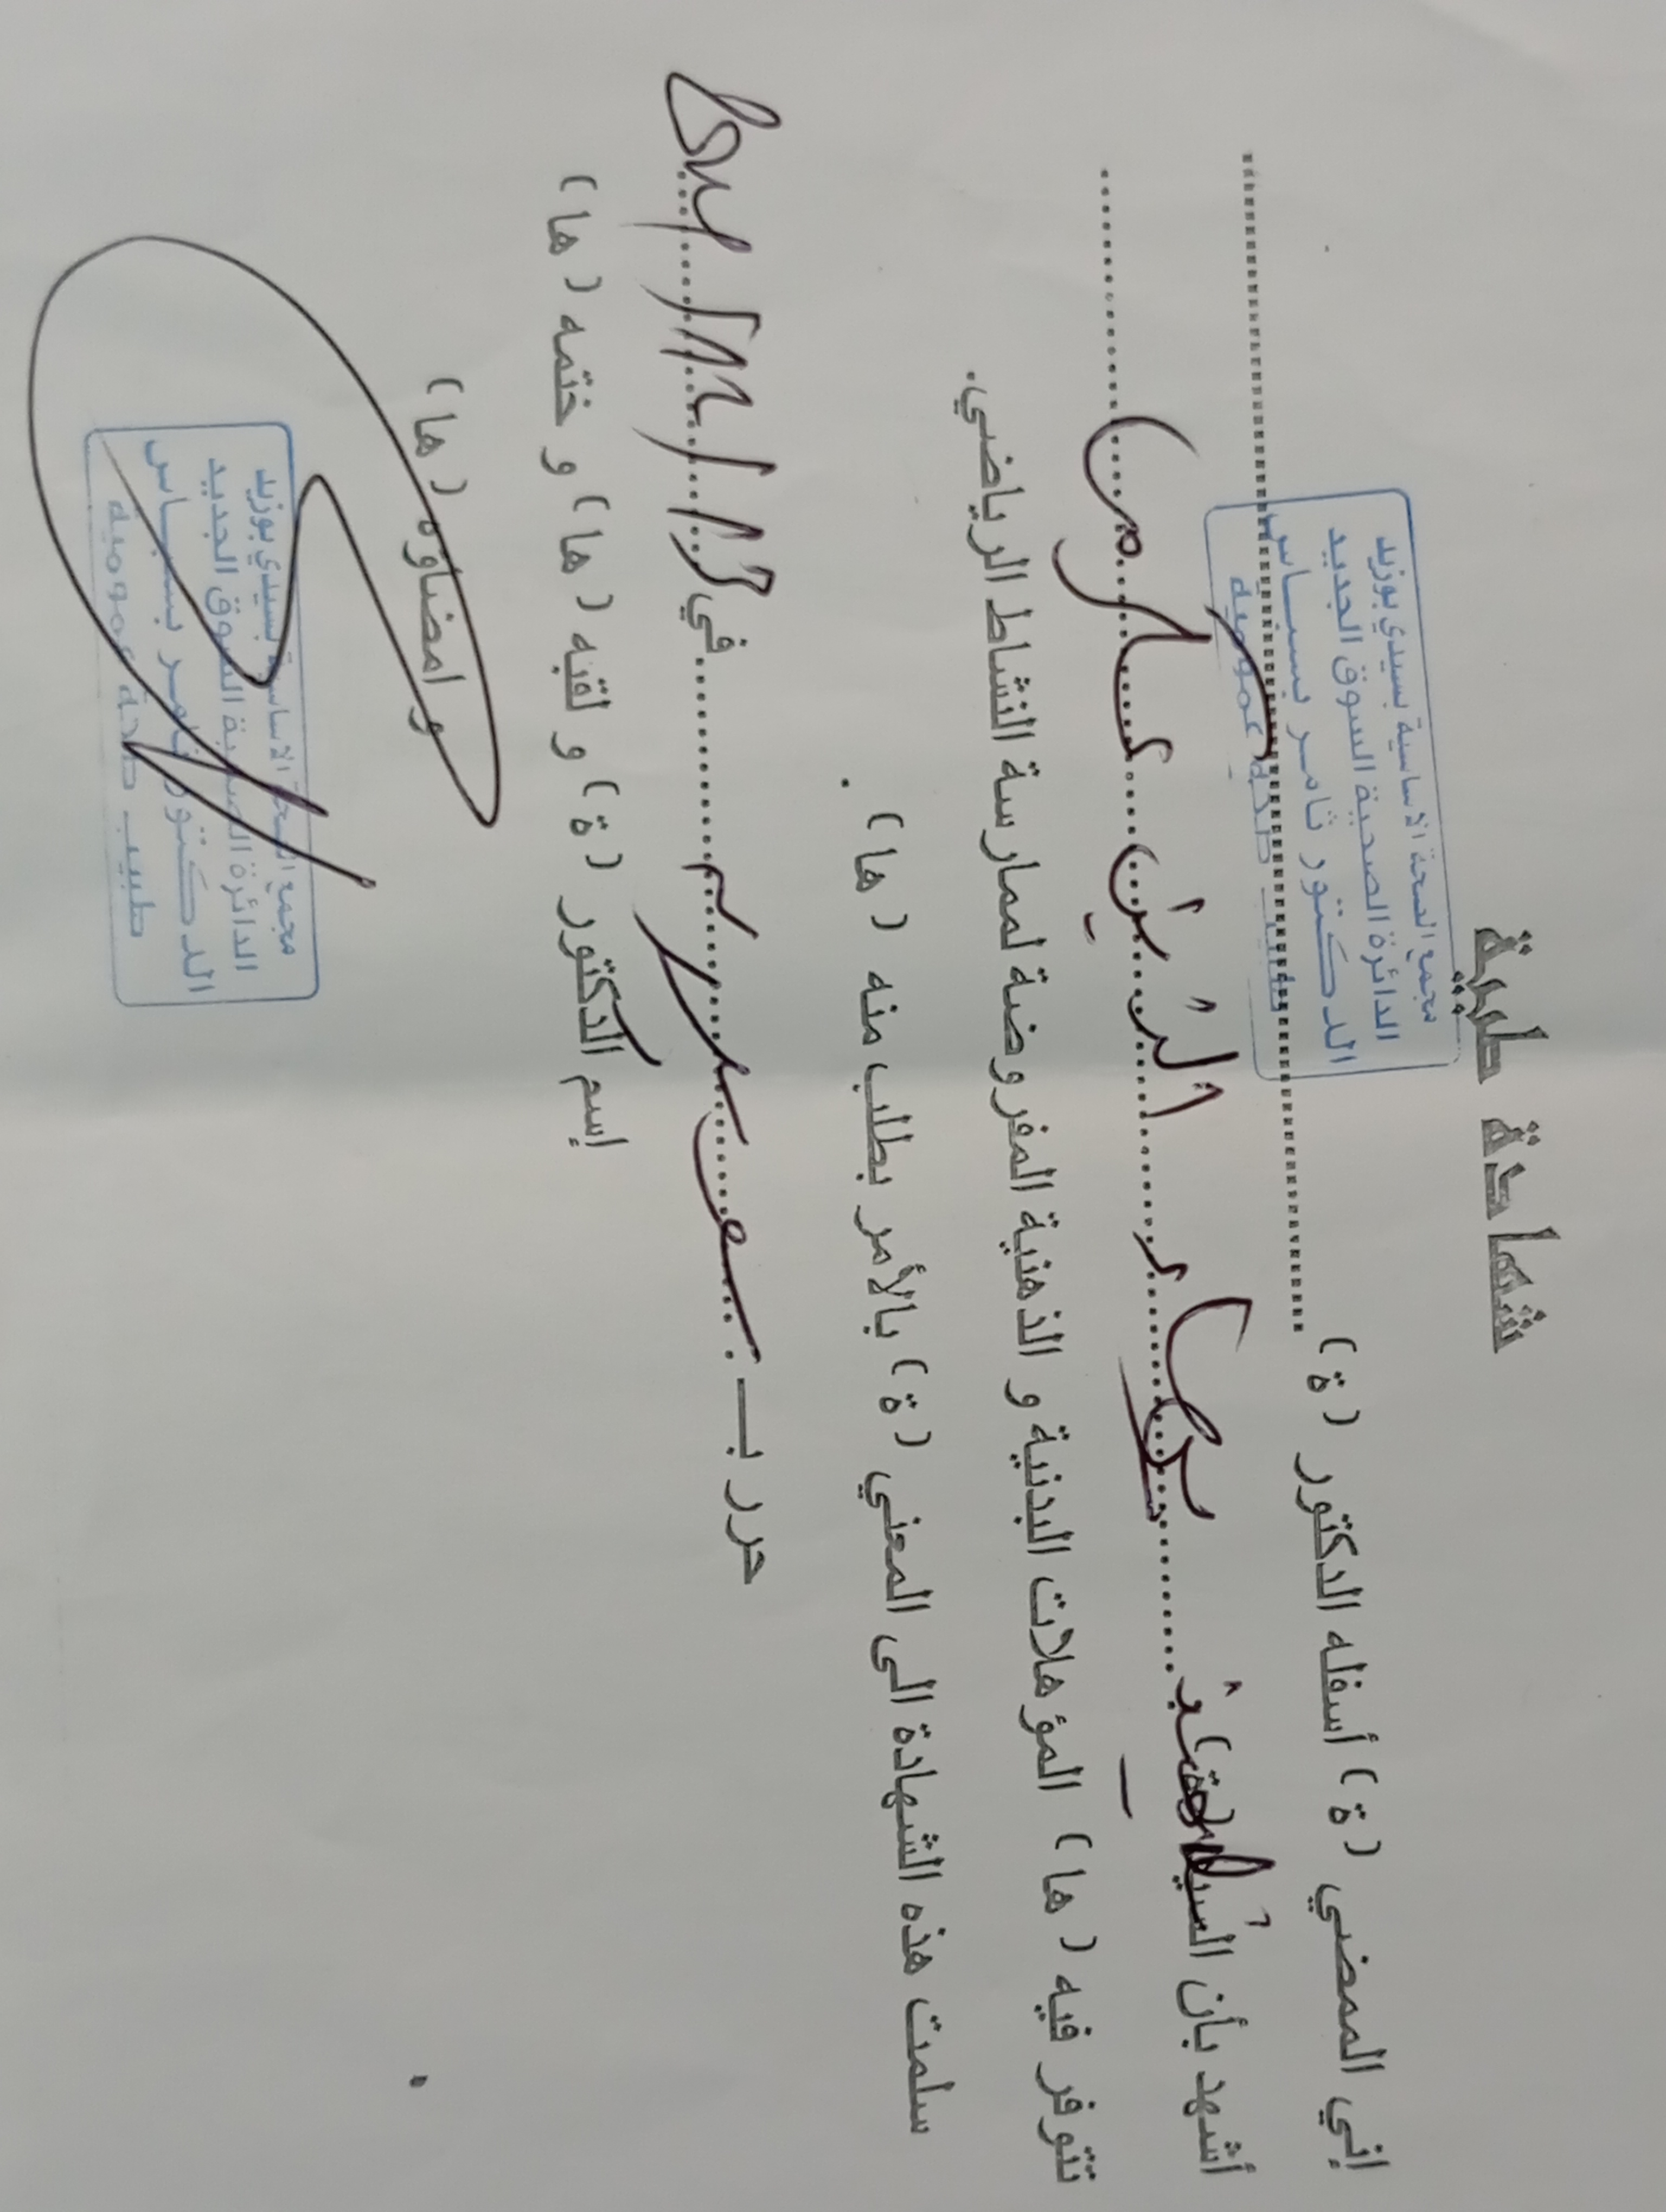 شهادة طبية
إني الممضي (ة) أسفله الدكتور (ة)
مجمع الصحة الاساسية بسيدي بوزيد
الدائرة الصحية السوق الجديد
الدكتور ثامر بسباس
طبيب صحة عمومية
أشهد بأن السيد
تتوفر فيه (ها) المؤهلات البدنية و الذهنية المفروضة لممارسة النشاط الرياضي.
سلمت هذه الشهادة الى المعني (ة) بالأمر بطلب منه (ها).
حرر بـ في
إسم الدكتور (ة) و لقبه (ها) و ختمه (ها)
و امضاؤه (ها)
مجمع الصحة الاساسية بسيدي بوزيد
الدائرة الصحية السوق الجديد
الدكتور ثامر بسباس
طبيب صحة عمومية